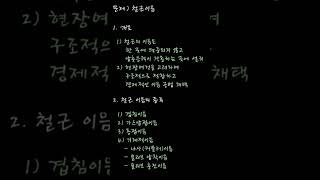 문제) 철근이음
1. 개요
1) 철근의 이음은
한 곳에 집중되지 않고
압축응력이 작용하는 곳에 설치
2) 현장여건을 고려하여
구조적으로 적합하고
경제적인 이음 공법 채택
2. 철근 이음의 종류
1) 겹침이음
2) 가스압접이음
3) 용접이음
4) 기계적이음
- 나사(커플러)이음
- 슬리브 압착이음
- 슬리브 충전이음